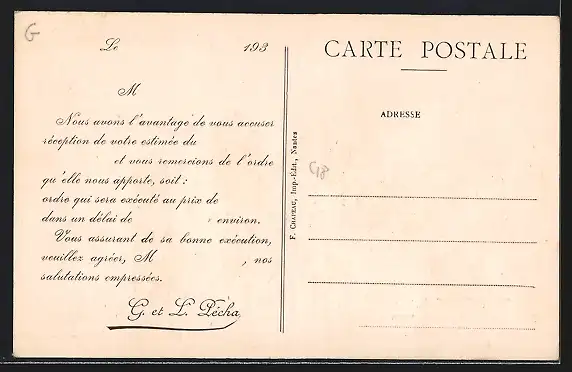 G
Le 193
M
Nous avons l'avantage de vous accuser
réception de votre estimée du
et vous remercions de l'ordre
qu'elle nous apporte, soit :
ordre qui sera exécuté au prix de
dans un délai de environ.
Vous assurant de sa bonne exécution,
veuillez agréer, M , nos
salutations empressées.
G. et L. Pécha
F. Chateau, Imp.-Édit., Nantes
CARTE POSTALE
ADRESSE
C18